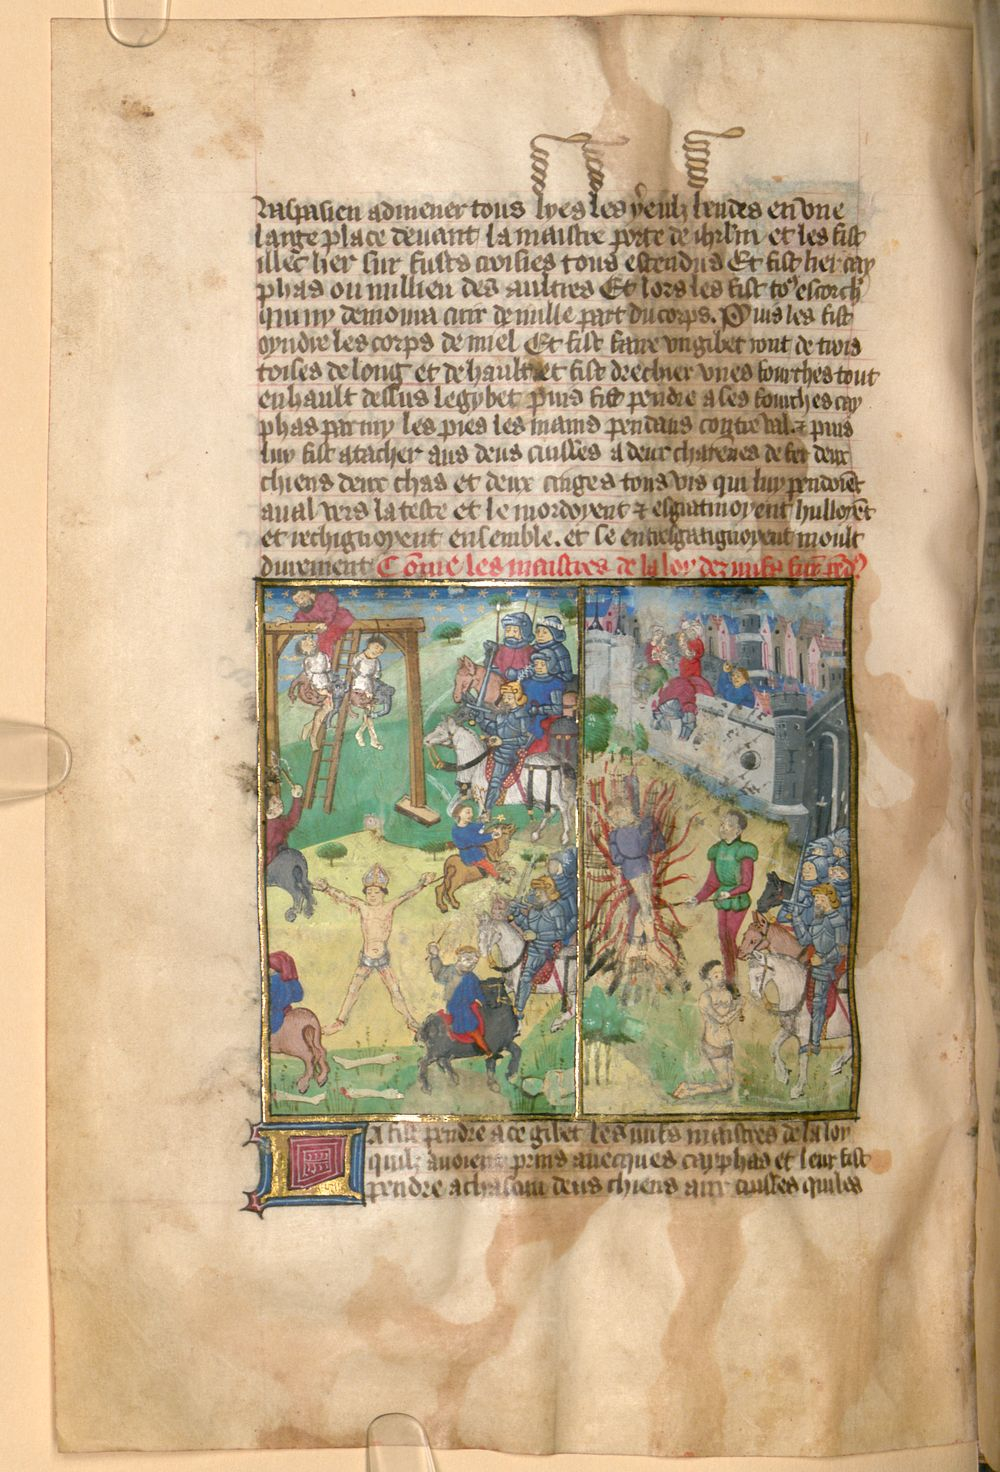 Vaspasien admener tous lyes les yeulz bendes en vne
large place deuant la maistre porte de ihrlm et les fist
illec lier sur fusts croisies tous estendus Et fist lier cay
phas ou millien des aultres Et lors les fist to9 escorch
qui ny demoura cuir de nulle part du corps. Puis les fist
oyndre les corps de miel Et fist faire vn gibet ront de trois
toises de long et de hault et fist drechier vnes fourches tout
en hault dessus le gybet puis fist pendre a ses fourches cay
phas par my les pies les mains pendans contre val. et puis
luy fist atacher aus deus cuisses a deux chaienes de fer deux
chiens deux chas et deux cinges tous vis qui luy pendoiẽt
aual vers la teste et le mordoyent et esgratinoyent hulloyẽt
et rechignoyent ensemble. et se entresgratignoyent moult
durement Cõme les maistres de la loy des iuifs furẽt
La fist pendre a ce gibet les iuifs maistres de la loy
quilz auoient prins auecques cayphas et leur fist
pendre a chascun deus chiens aux cuisses qui les